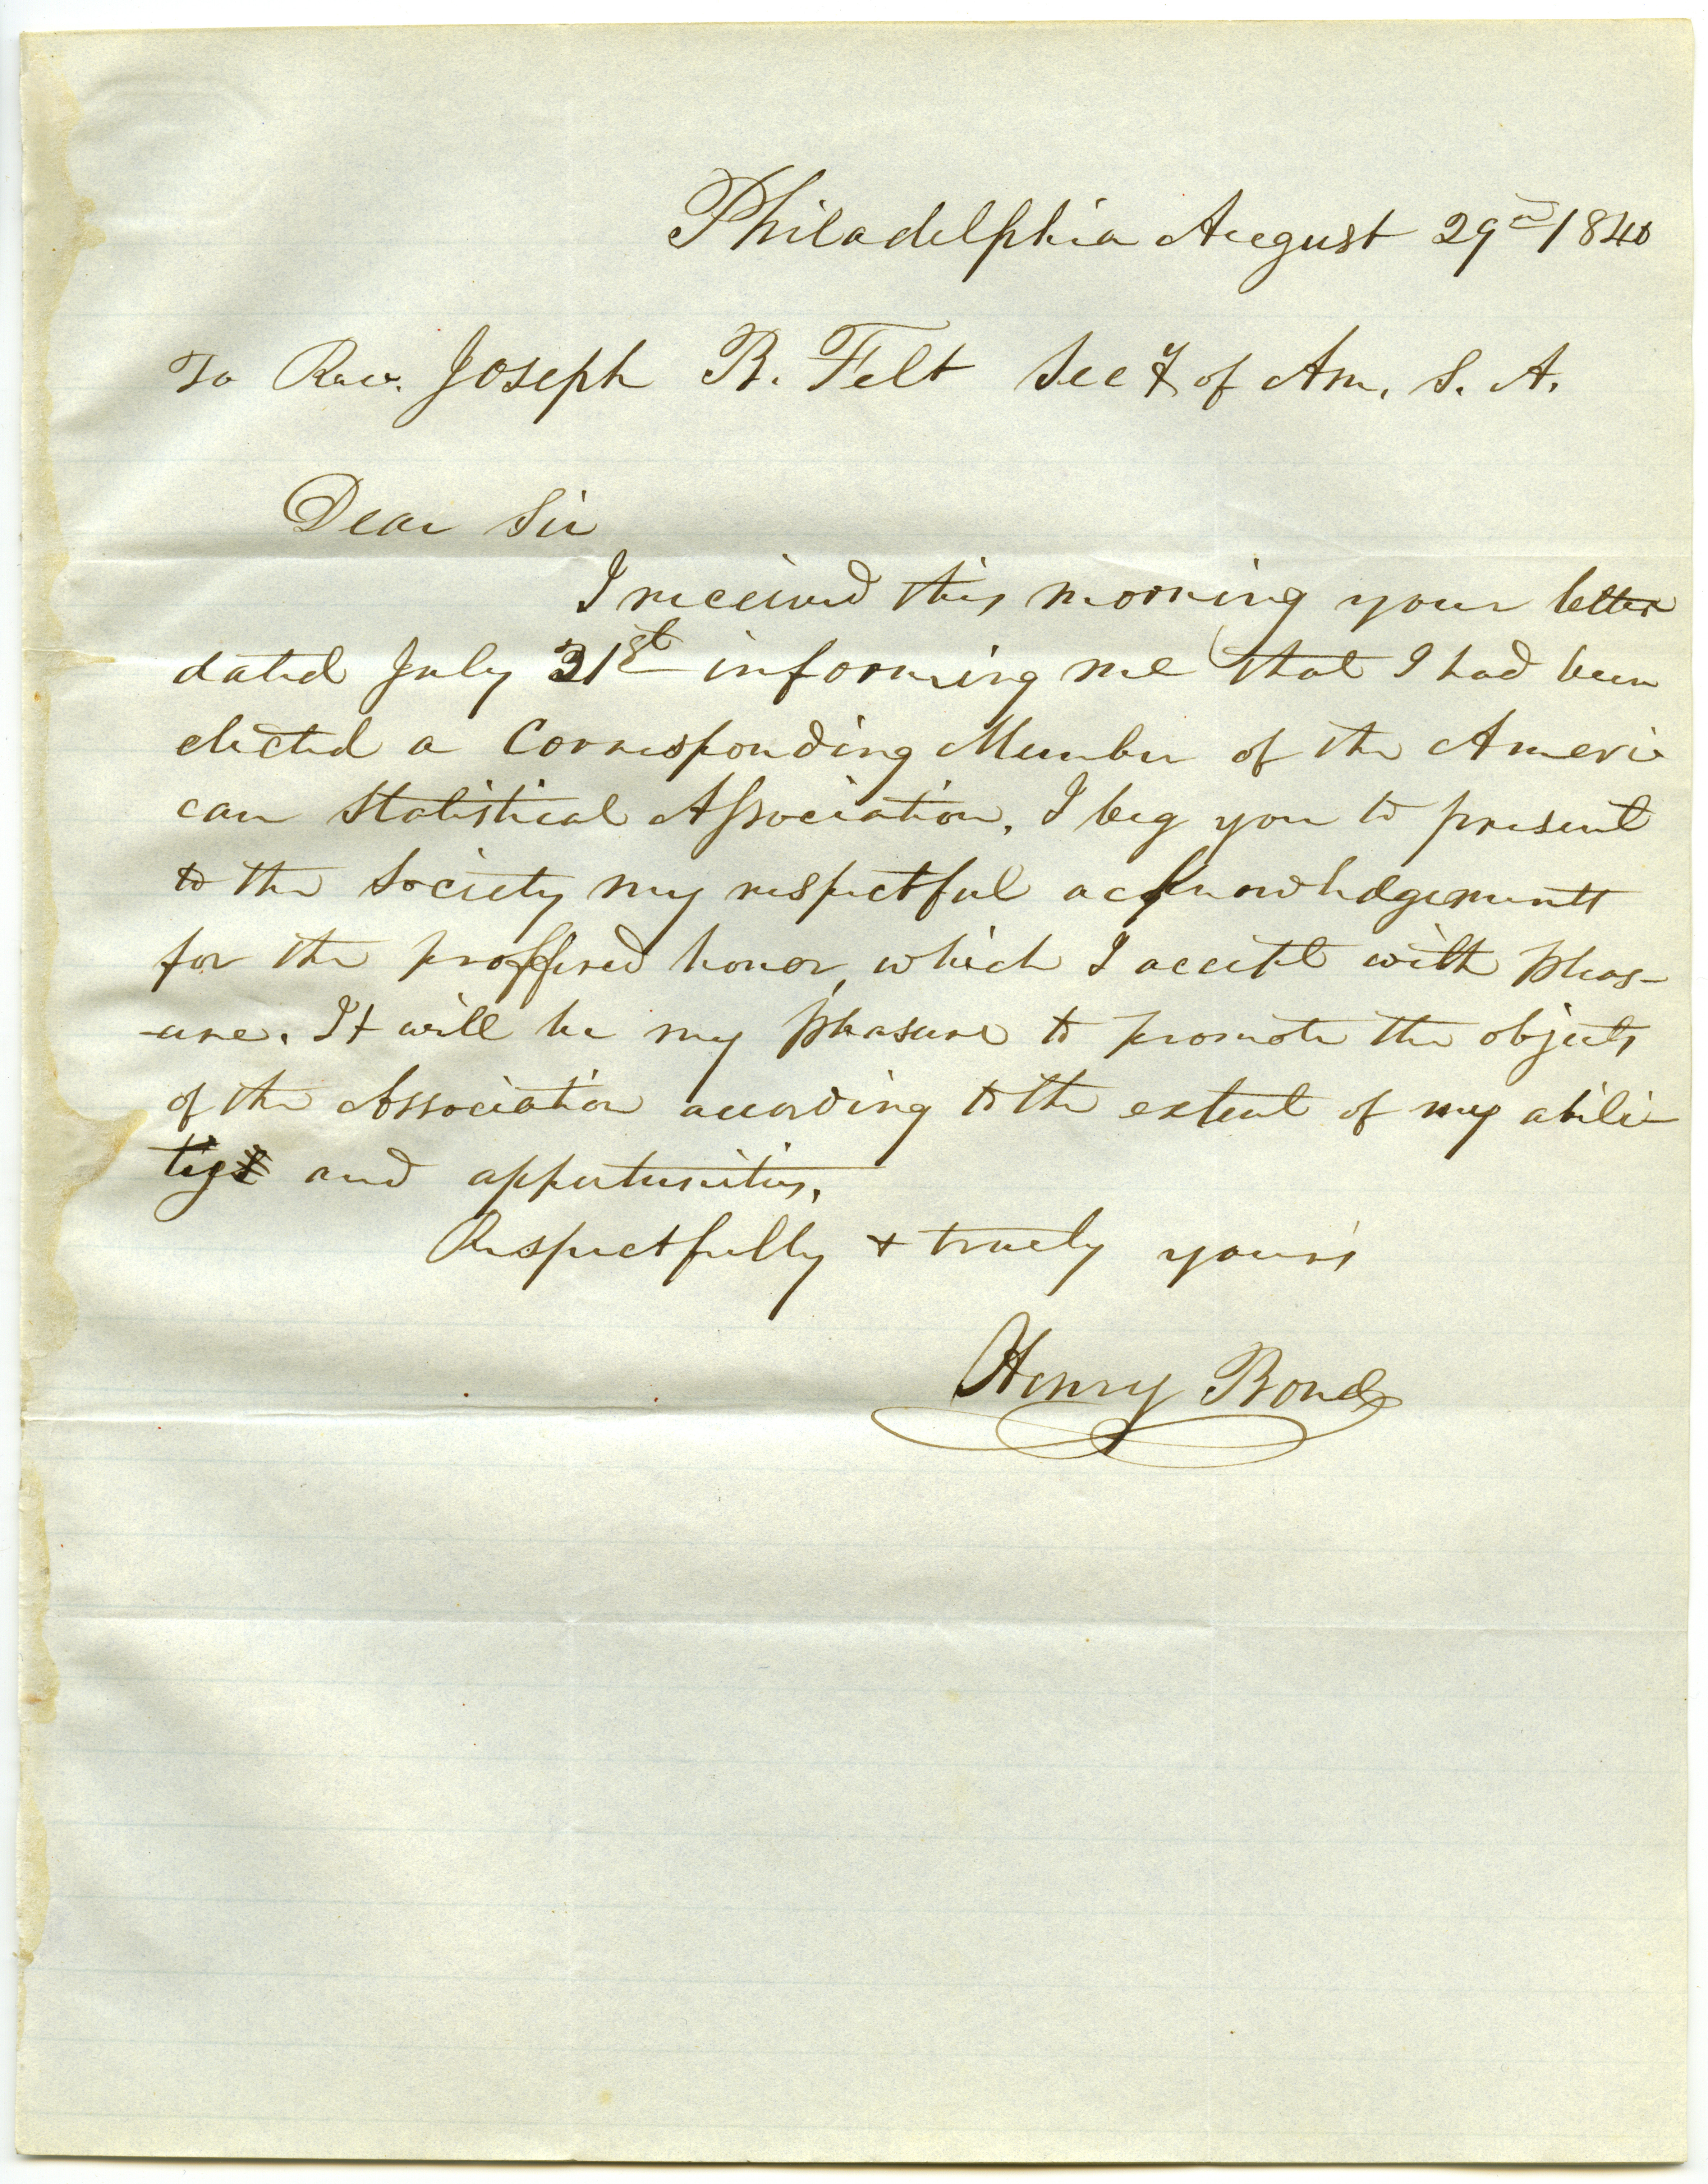 Philadelphia August 29th 1840
To Rev. Joseph B. Felt Secy of Am. S. A.
Dear Sir
I received this morning your letter
dated July 31st informing me that I had been
elected a Corresponding Member of the Ameri
can Statistical Association. I beg you to present
to the Society my respectful acknowledgements
for the proffered honor, which I accept with pleas-
-ure. It will be my pleasure to promote the objects
of the Association according to the extent of my abili-
ties and oppertunities.
Respectfully & truely yours
Henry Bond